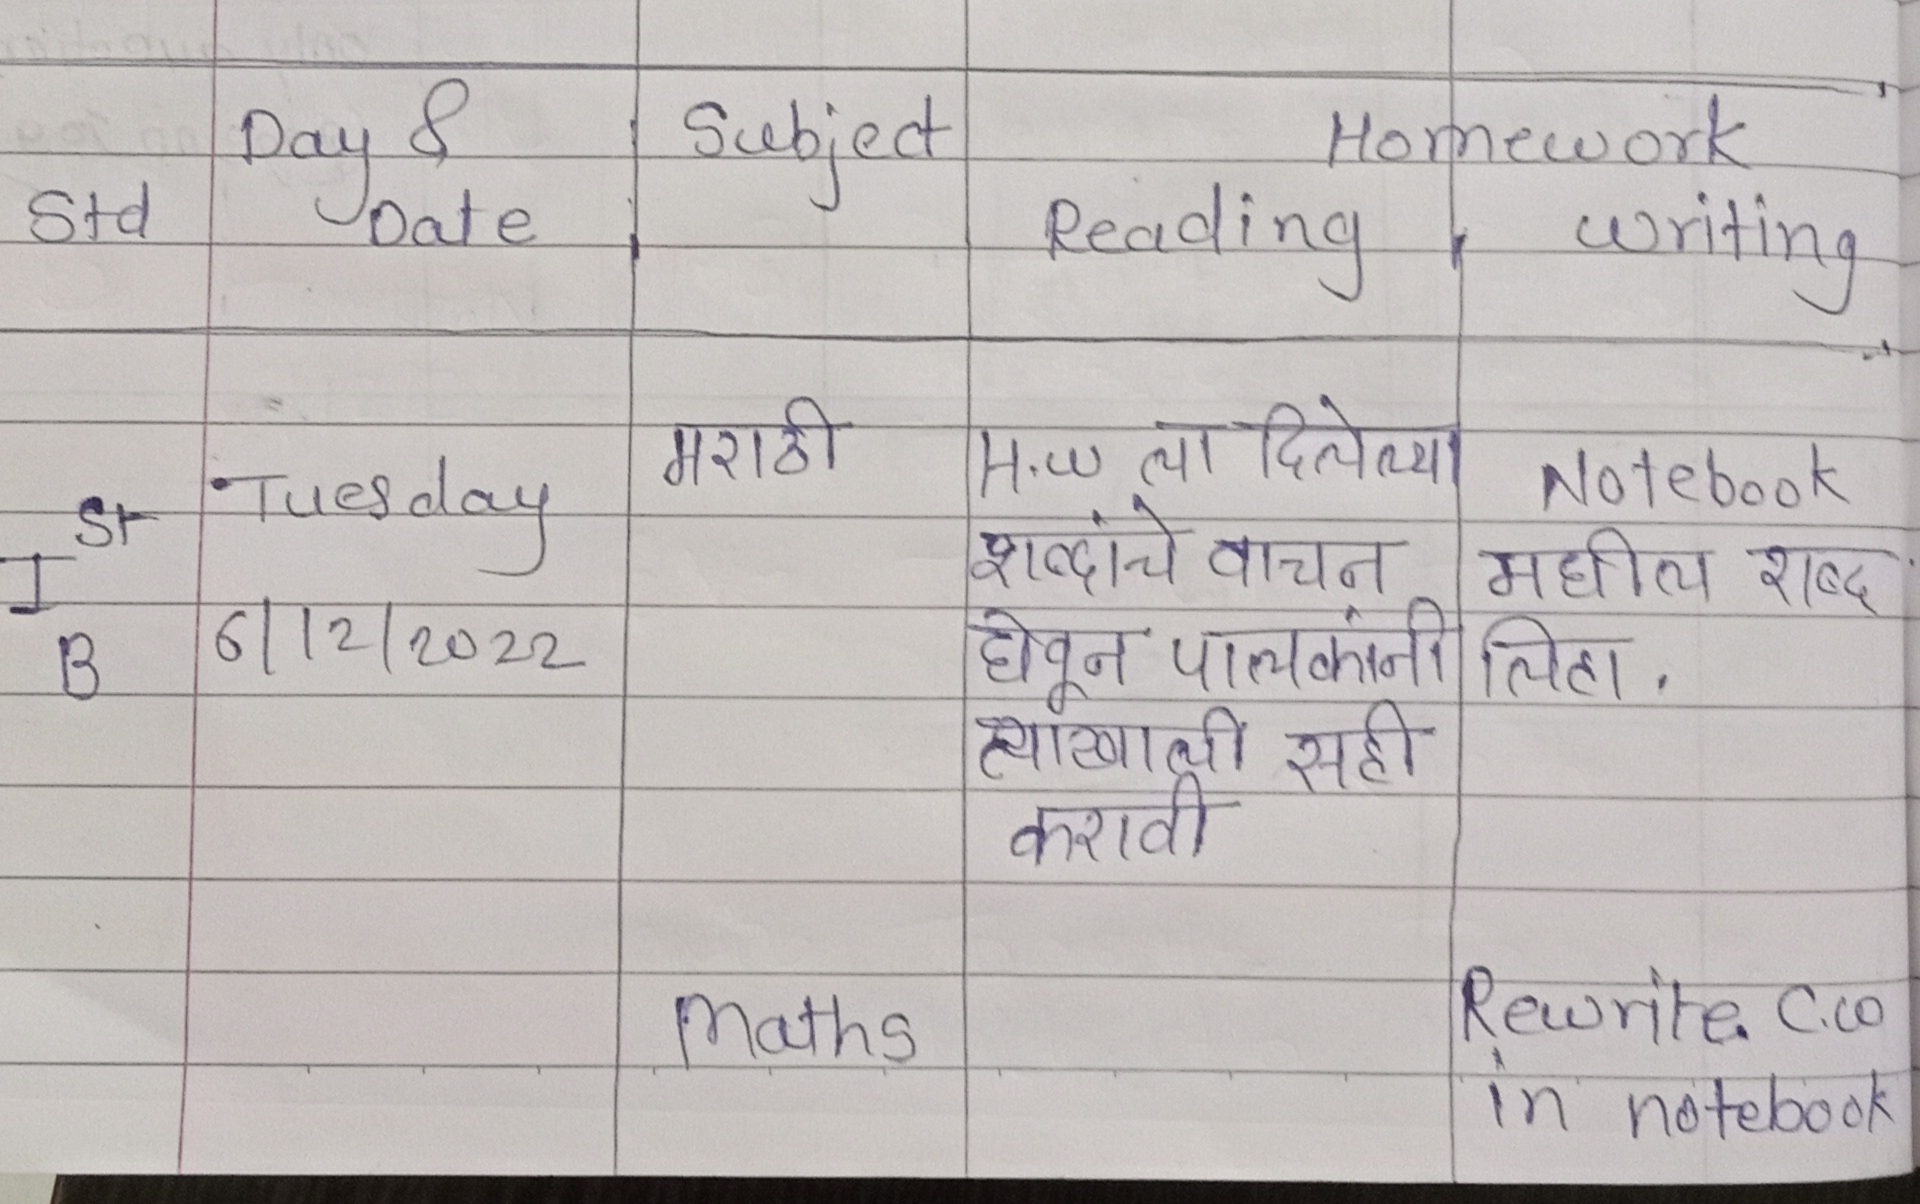 Day & Subject Homework
Std Date Reading writing
मराठी H.w ला दिलेल्या Notebook
I St Tuesday शब्दांचे वाचन मधील शब्द
B 6/12/2022 घेवून पालकांनी लिहा.
त्याखाली सही
करावी
Maths Rewrite C.w
in notebook